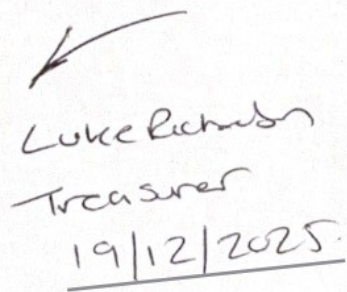 Luke Richardson
Treasurer
19/12/2025.